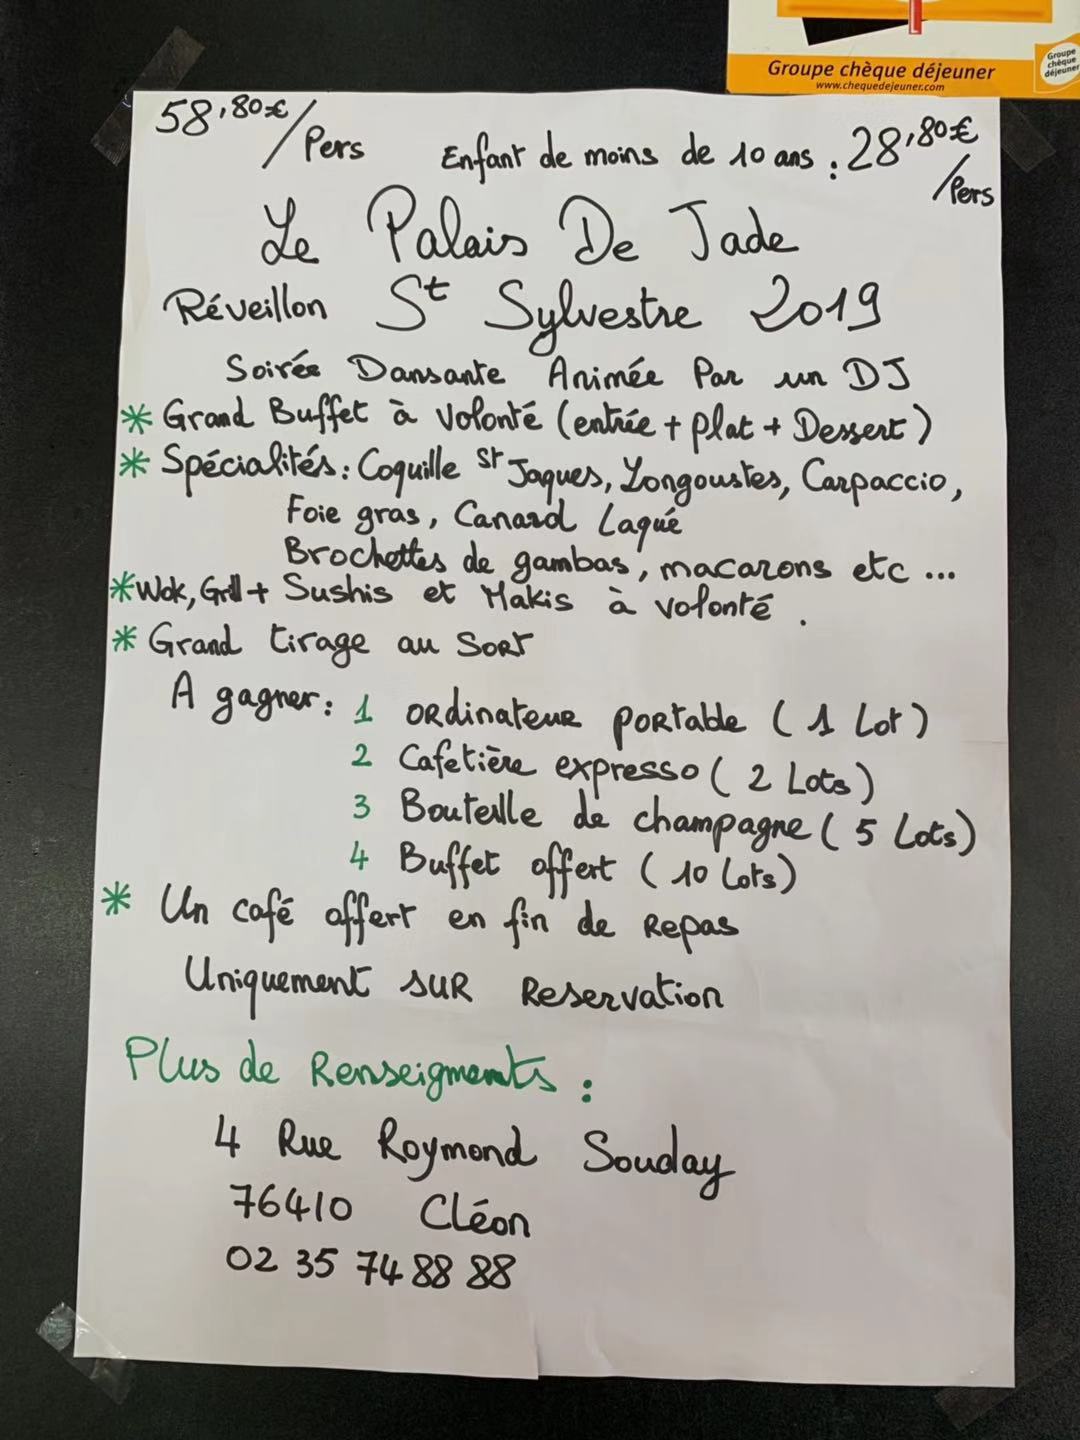 Groupe chèque déjeuner
www.chequedejeuner.com
Groupe
chèque
déjeuner
58,80€/Pers
Enfant de moins de 10 ans : 28,80€/Pers
Le Palais De Jade
Réveillon St Sylvestre 2019
Soirée Dansante Animée Par un DJ
* Grand Buffet à volonté (entrée + plat + Dessert)
* Spécialités : Coquille St Jaques, Longoustes, Carpaccio,
Foie gras, Canard Laqué
Brochettes de gambas, macarons etc ...
* Wok, Grill + Sushis et Makis à volonté.
* Grand tirage au Sort
A gagner : 1 ordinateur portable (1 Lot)
2 Cafetière expresso (2 Lots)
3 Bouteille de champagne (5 Lots)
4 Buffet offert (10 Lots)
* Un café offert en fin de Repas
Uniquement sur Reservation
Plus de Renseigments :
4 Rue Roymond Souday
76410 Cléon
02 35 74 88 88